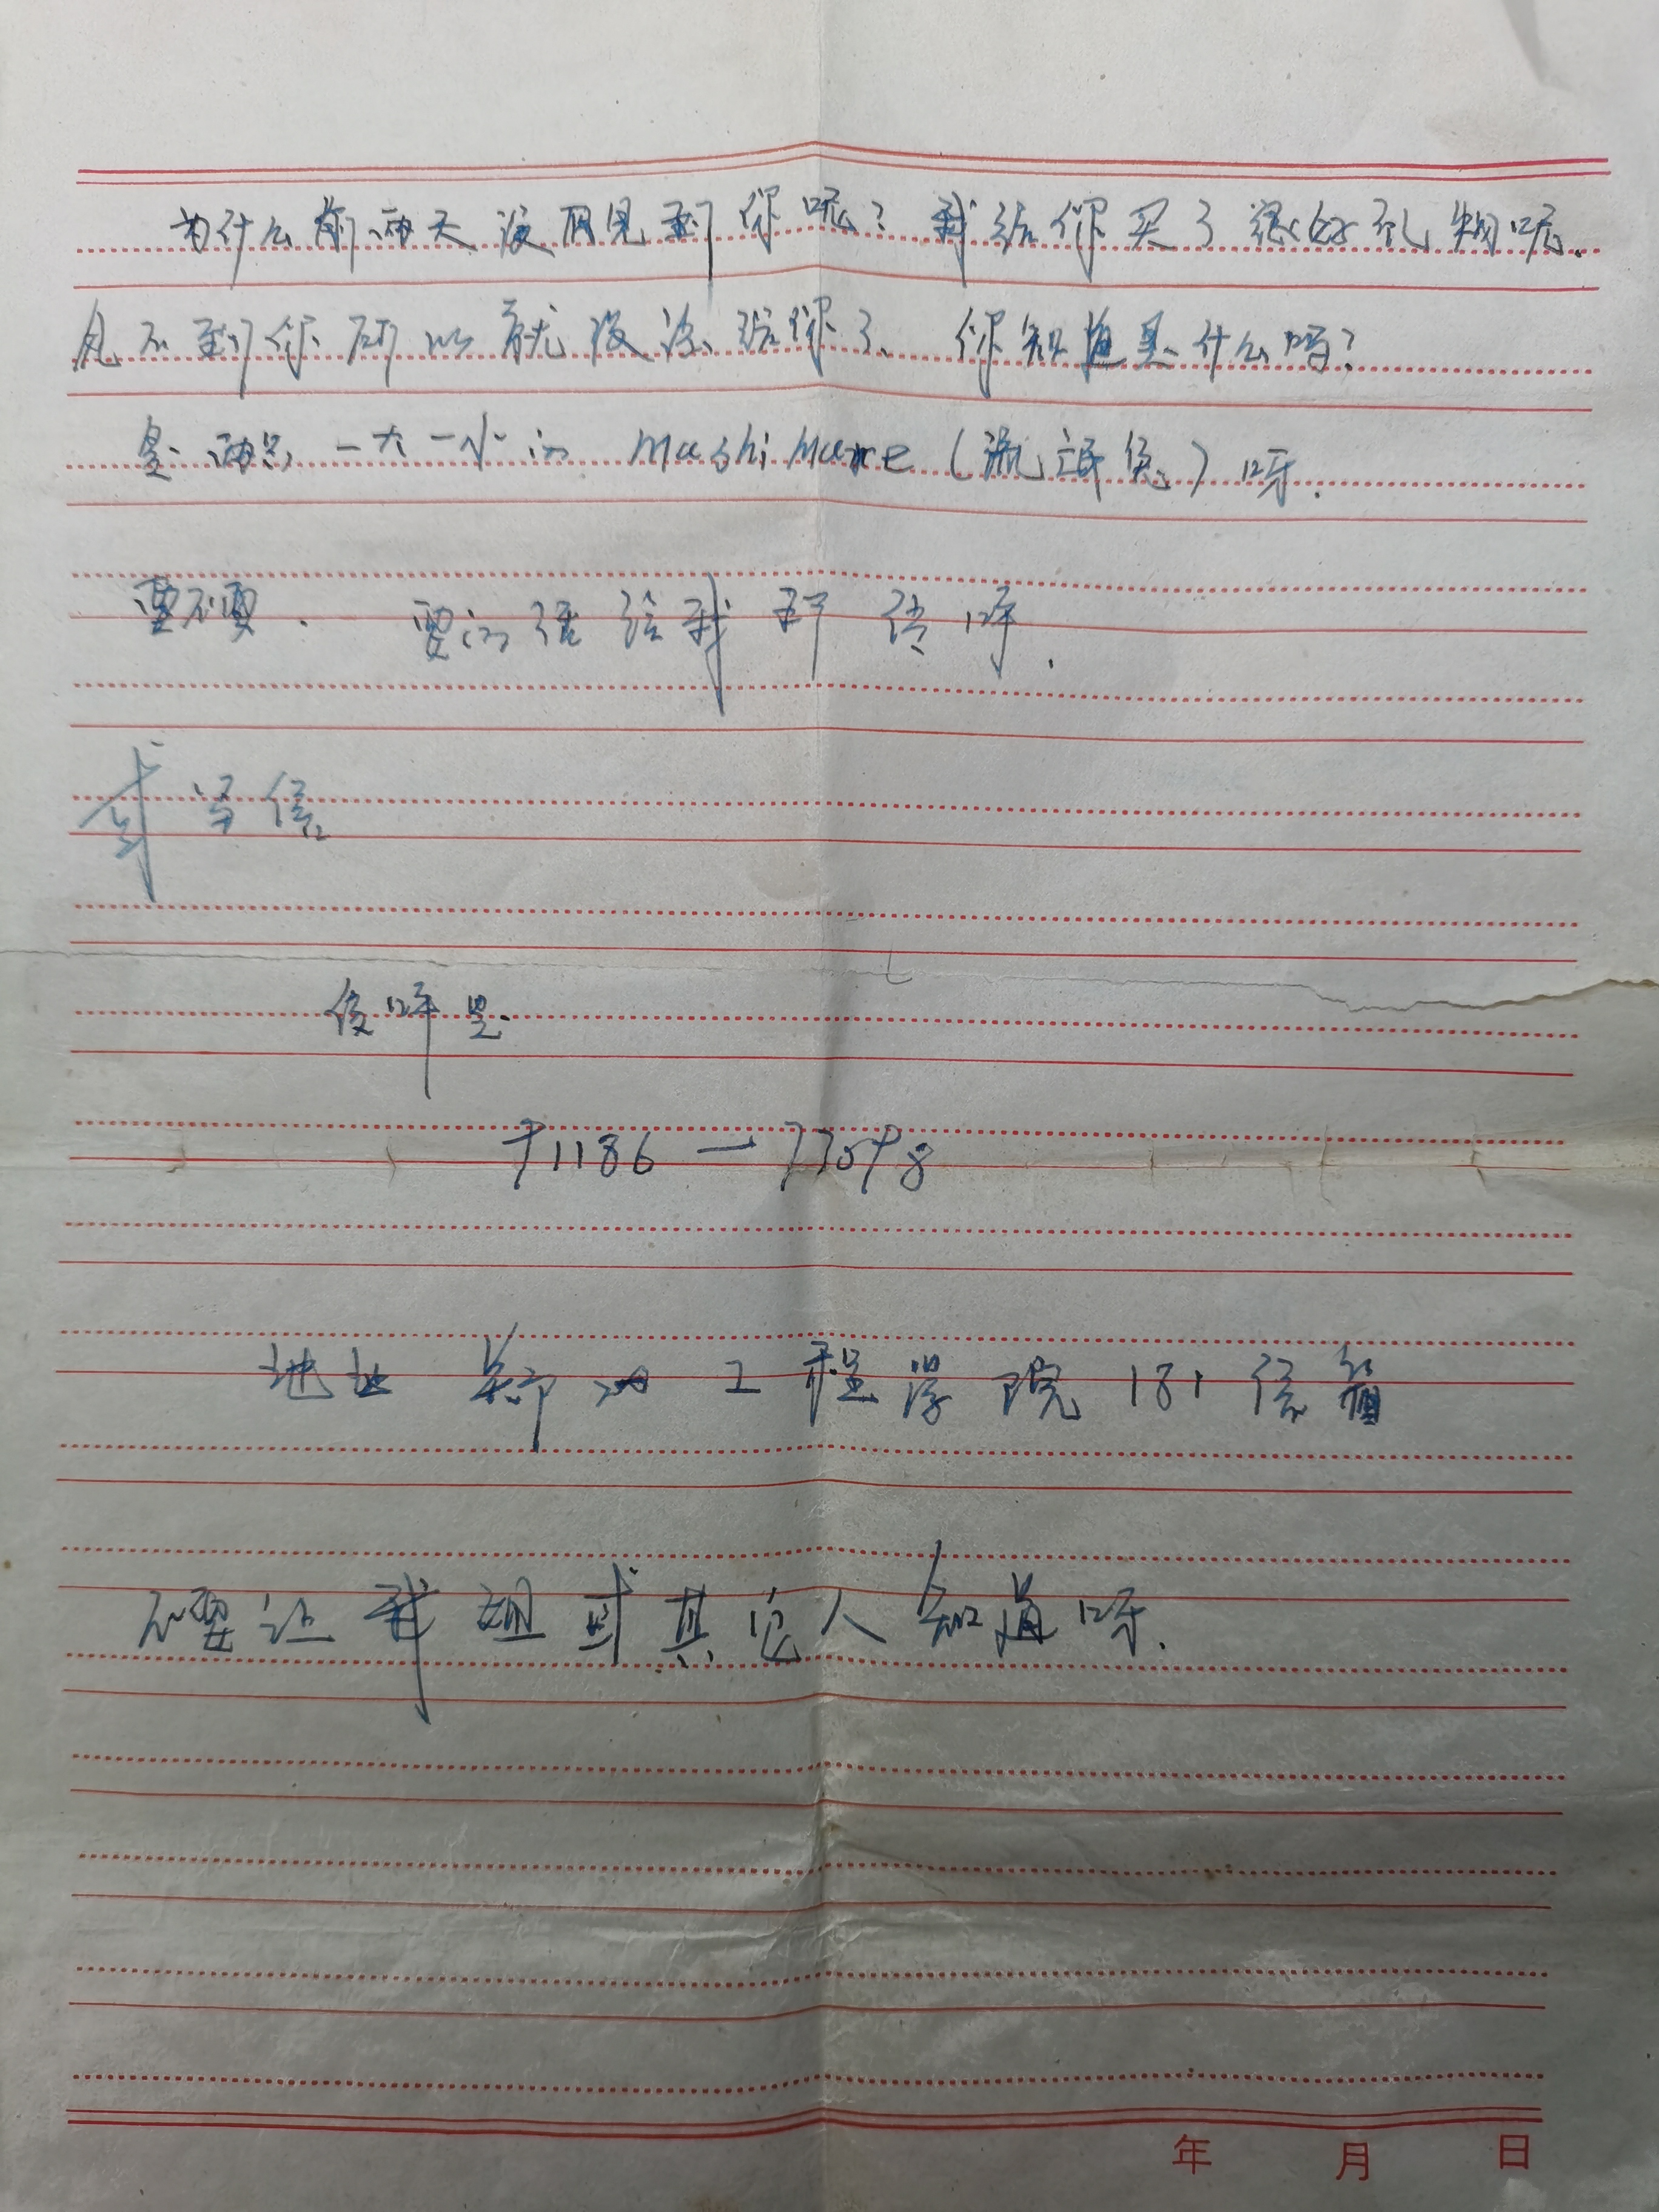 为什么前两天没有见到你呢？我给你买了很好礼物呢.
见不到你所以就没法给你了. 你知道是什么吗？
是两只一大一小的 MashiMare（流氓兔）呀.
要不要. 要的话给我打传呼.
或写信
传呼是
71186—77098
地址 郑州工程学院 181 信箱
不要让我姐或其它人知道呀.
年 月 日